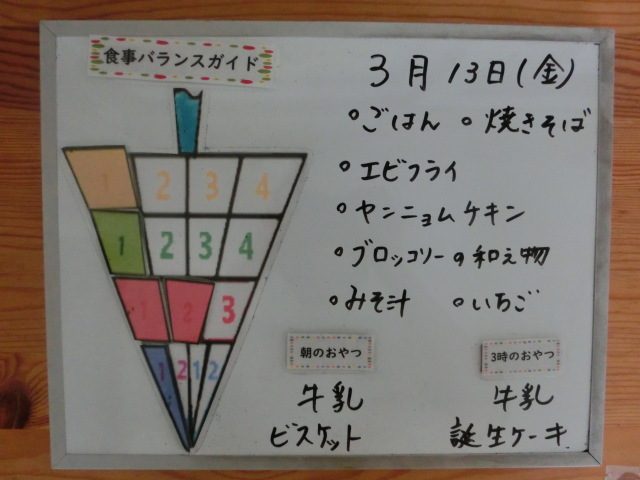 食事バランスガイド
3月13日(金)
ごはん 焼きそば
エビフライ
ヤンニョムチキン
ブロッコリーの和え物
みそ汁 いちご
朝のおやつ
牛乳
ビスケット
3時のおやつ
牛乳
誕生ケーキ
1 2 3 4
1 2 3 4
1 2 3
1 2 1 2